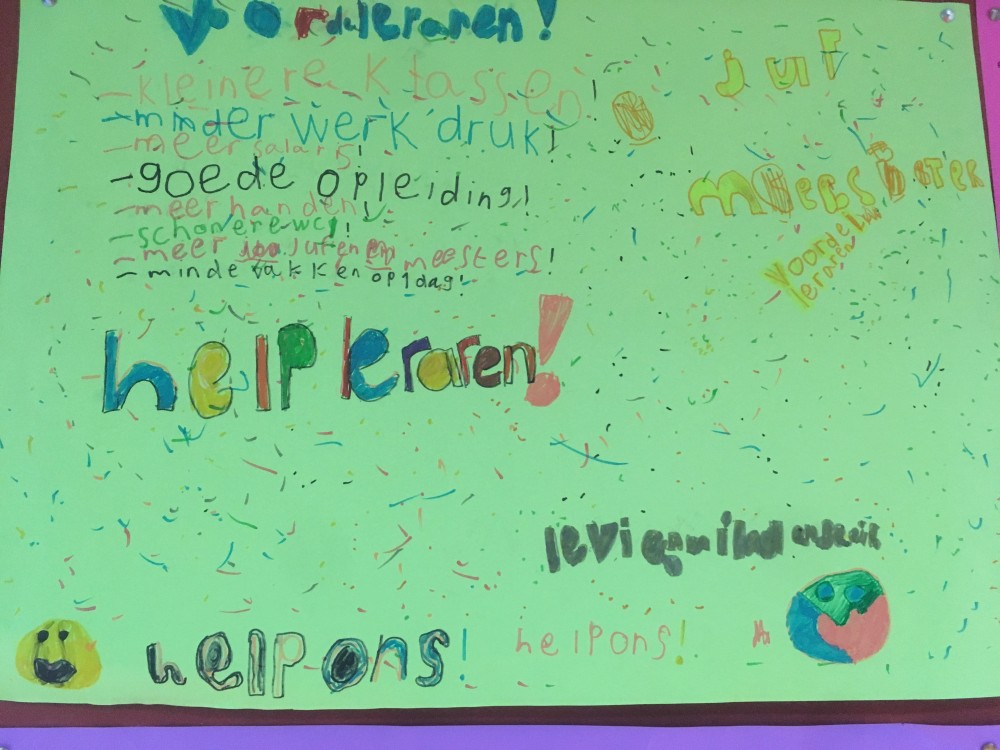 Voor de leraren!
- kleinere klassen!
- minder werkdruk!
- meer salaris!
- goede opleiding!
- meer handen!
- schonere wc!
- meer juffen en meesters!
- minde vakken op 1 dag!
juf
meester
voordeleraren
help leraren!
levi
help ons!
help ons!